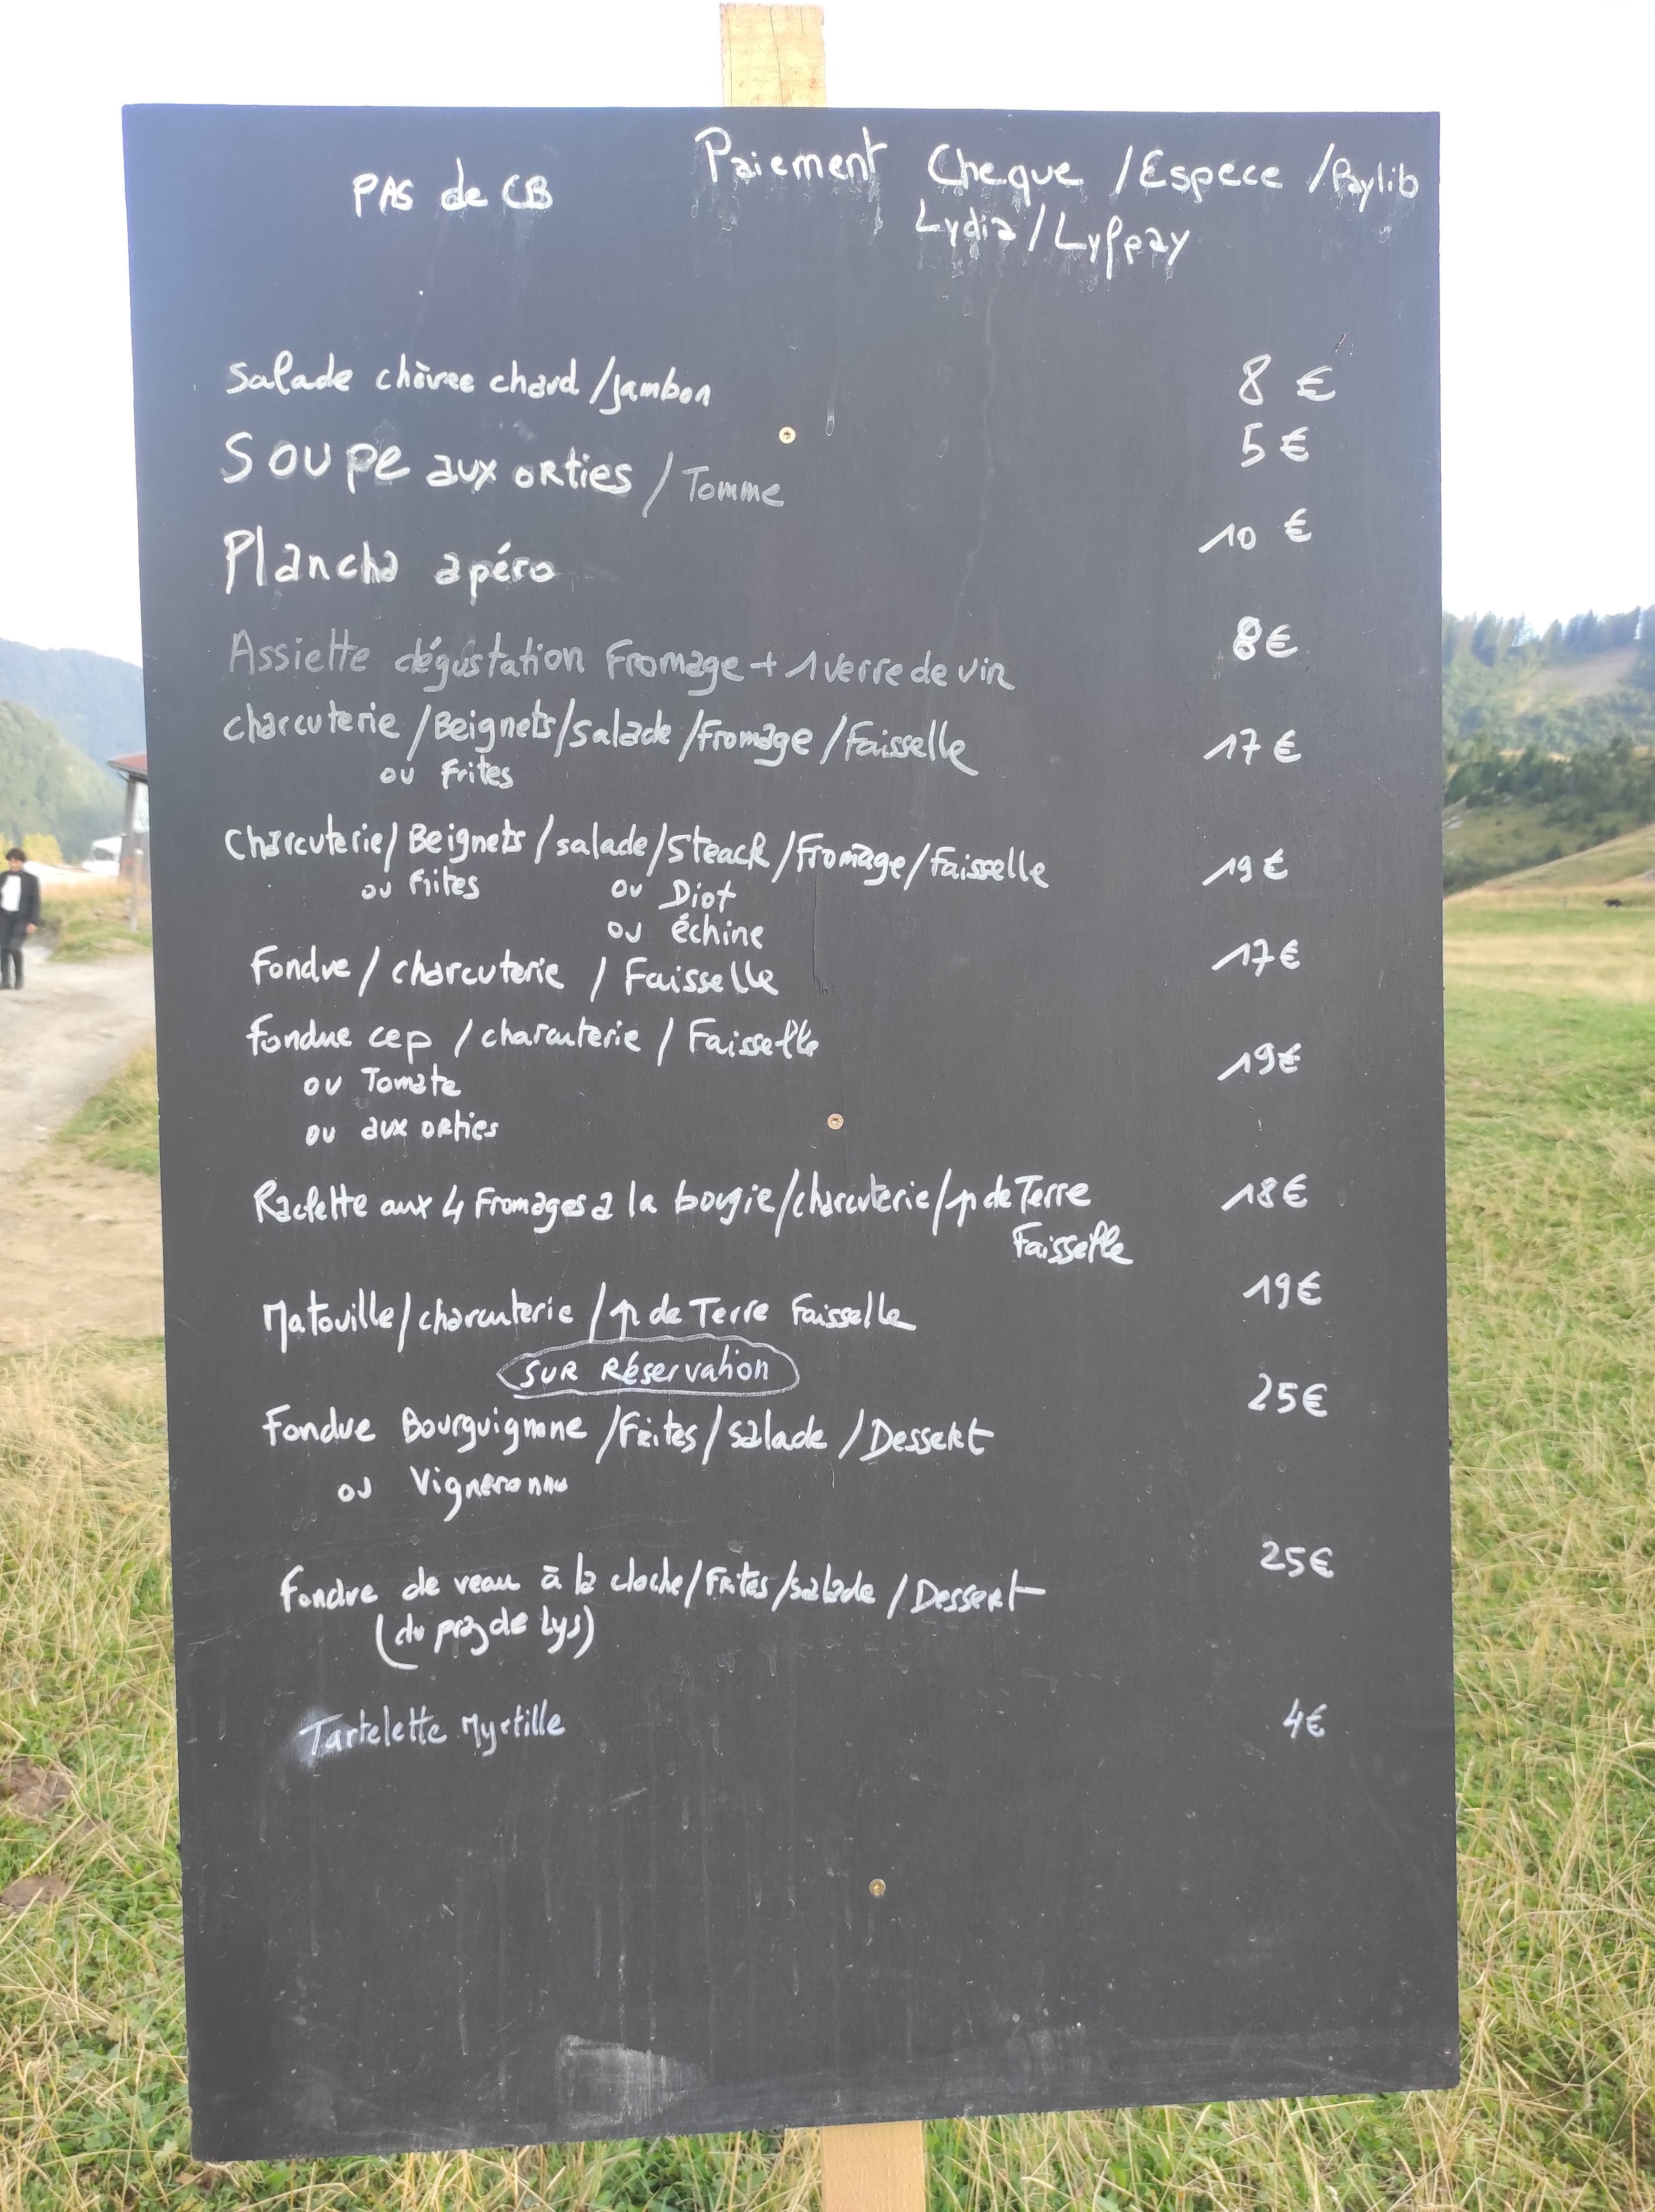 PAS de CB
Paiement Cheque / Espece / Paylib
Lydia / Lyfpay
Salade chèvre chaud / jambon 8 €
Soupe aux orties / Tomme 5 €
Plancha apéro 10 €
Assiette dégustation Fromage + 1 verre de vin 8 €
charcuterie / Beignets / salade / fromage / Faisselle 17 €
ou frites
Charcuterie / Beignets / salade / Steack / fromage / Faisselle 19 €
ou frites ou Diot
ou échine
Fondue / charcuterie / Faisselle 17 €
Fondue cep / charcuterie / Faisselle 19 €
ou Tomate
ou aux orties
Raclette aux 4 fromages a la bougie / charcuterie / p de Terre 18 €
Faisselle
Matouille / charcuterie / p de Terre Faisselle 19 €
SUR Réservation
Fondue Bourguignone / Frites / salade / Dessert 25 €
ou Vigneronne
Fondue de veau à la cloche / Frites / salade / Dessert 25 €
(du praz de Lys)
Tartelette Myrtille 4 €